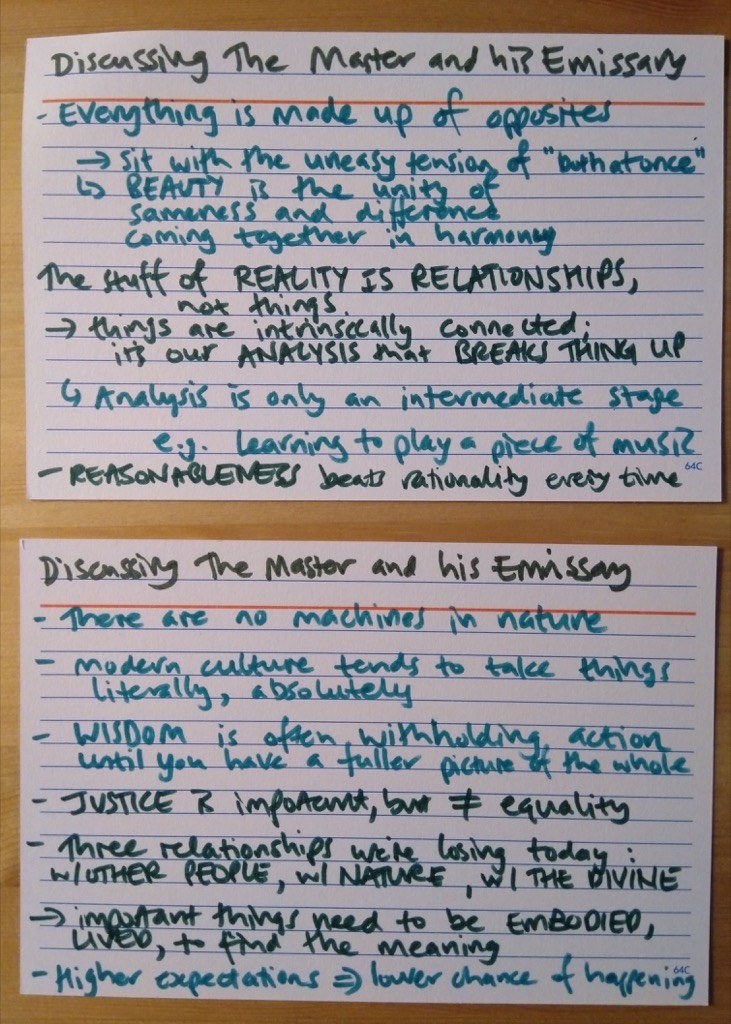 Discussing The Master and his Emissary
- Everything is made up of opposites
→ sit with the uneasy tension of "both at once"
↳ BEAUTY is the unity of
sameness and difference
coming together in harmony
The stuff of REALITY IS RELATIONSHIPS,
not things.
→ things are intrinsically connected;
it's our ANALYSIS that BREAKS THING UP
↳ Analysis is only an intermediate stage
e.g. learning to play a piece of music
64C
- REASONABLENESS beats rationality every time
Discussing The Master and his Emissary
- There are no machines in nature
- modern culture tends to take things
literally, absolutely
- WISDOM is often withholding action
until you have a fuller picture of the whole
- JUSTICE is important, but ≠ equality
- Three relationships we're losing today:
w/ OTHER PEOPLE, w/ NATURE, w/ THE DIVINE
→ important things need to be EMBODIED,
LIVED, to find the meaning
64C
- Higher expectations ⇒ lower chance of happening